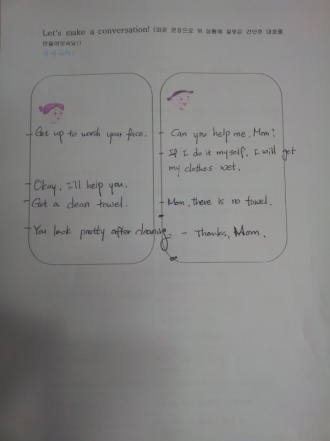 Let's make a conversation! (배운 문장으로 위 상황에 알맞은 간단한 대화를
만들어보세요!)
- Get up to wash your face.
- Can you help me, Mom?
- If I do it myself, I will get
my clothes wet.
- Okay, I'll help you.
- Get a clean towel.
- Mom, there is no towel.
- You look pretty after cleaning.
- Thanks, Mom.